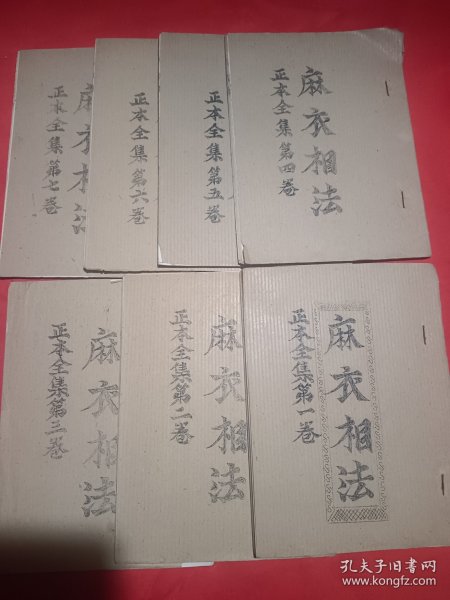 麻衣相法
正本全集第四卷
正本全集第五卷
正本全集第六卷
麻衣相法
正本全集第七卷
麻衣相法
正本全集第一卷
麻衣相法
正本全集第二卷
麻衣相法
正本全集第三卷
孔夫子旧书网
www.kongfz.com